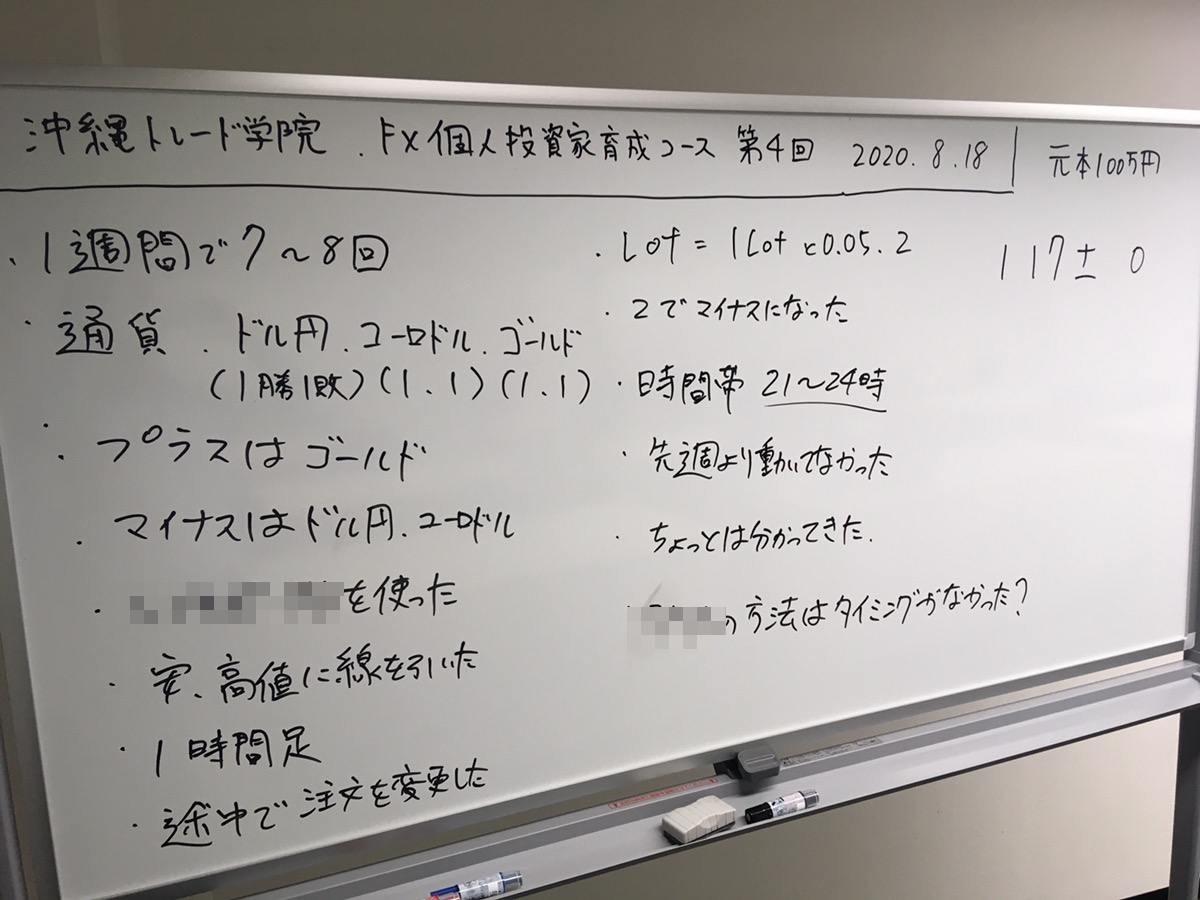 沖縄トレード学院 . FX個人投資家育成コース 第4回 2020.8.18 | 元本100万円
・1週間で7〜8回
・通貨 . ドル円 . ユーロドル . ゴールド
(1勝1敗)(1.1)(1.1)
・プラスはゴールド
・マイナスはドル円.ユーロドル
・を使った
・安、高値に線を引いた
・1時間足
・途中で注文を変更した
・Lot = 1Lotと0.05.2
・2でマイナスになった
・時間帯 21〜24時
・先週より動いてなかった
・ちょっとは分かってきた.
の方法はタイミングがなかった?
117± 0